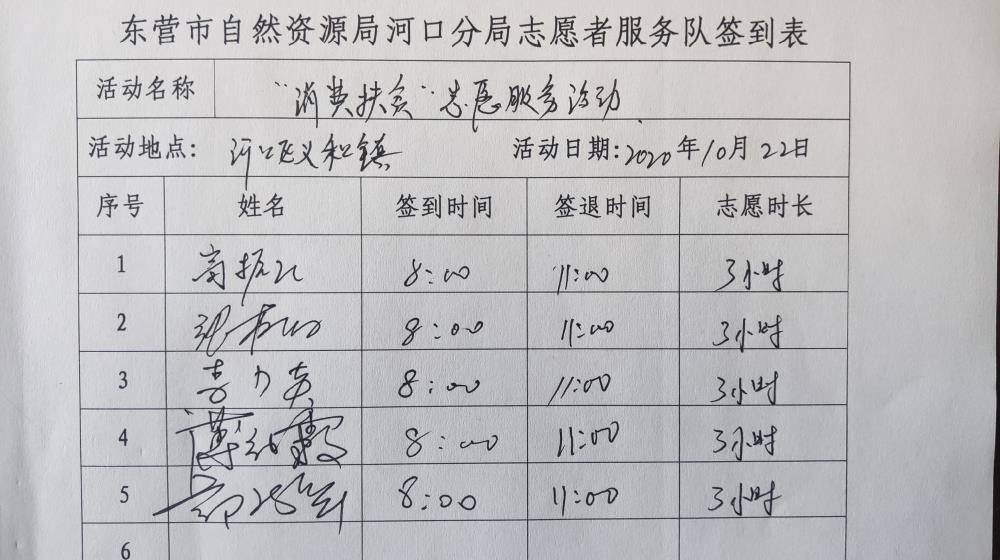 东营市自然资源局河口分局志愿者服务队签到表
活动名称 "消费扶贫"志愿服务活动
活动地点: 河口区义和镇 活动日期: 2020年10月22日
序号 姓名 签到时间 签退时间 志愿时长
1 8:00 11:00 3小时
2 8:00 11:00 3小时
3 8:00 11:00 3小时
4 8:00 11:00 3小时
5 8:00 11:00 3小时
6